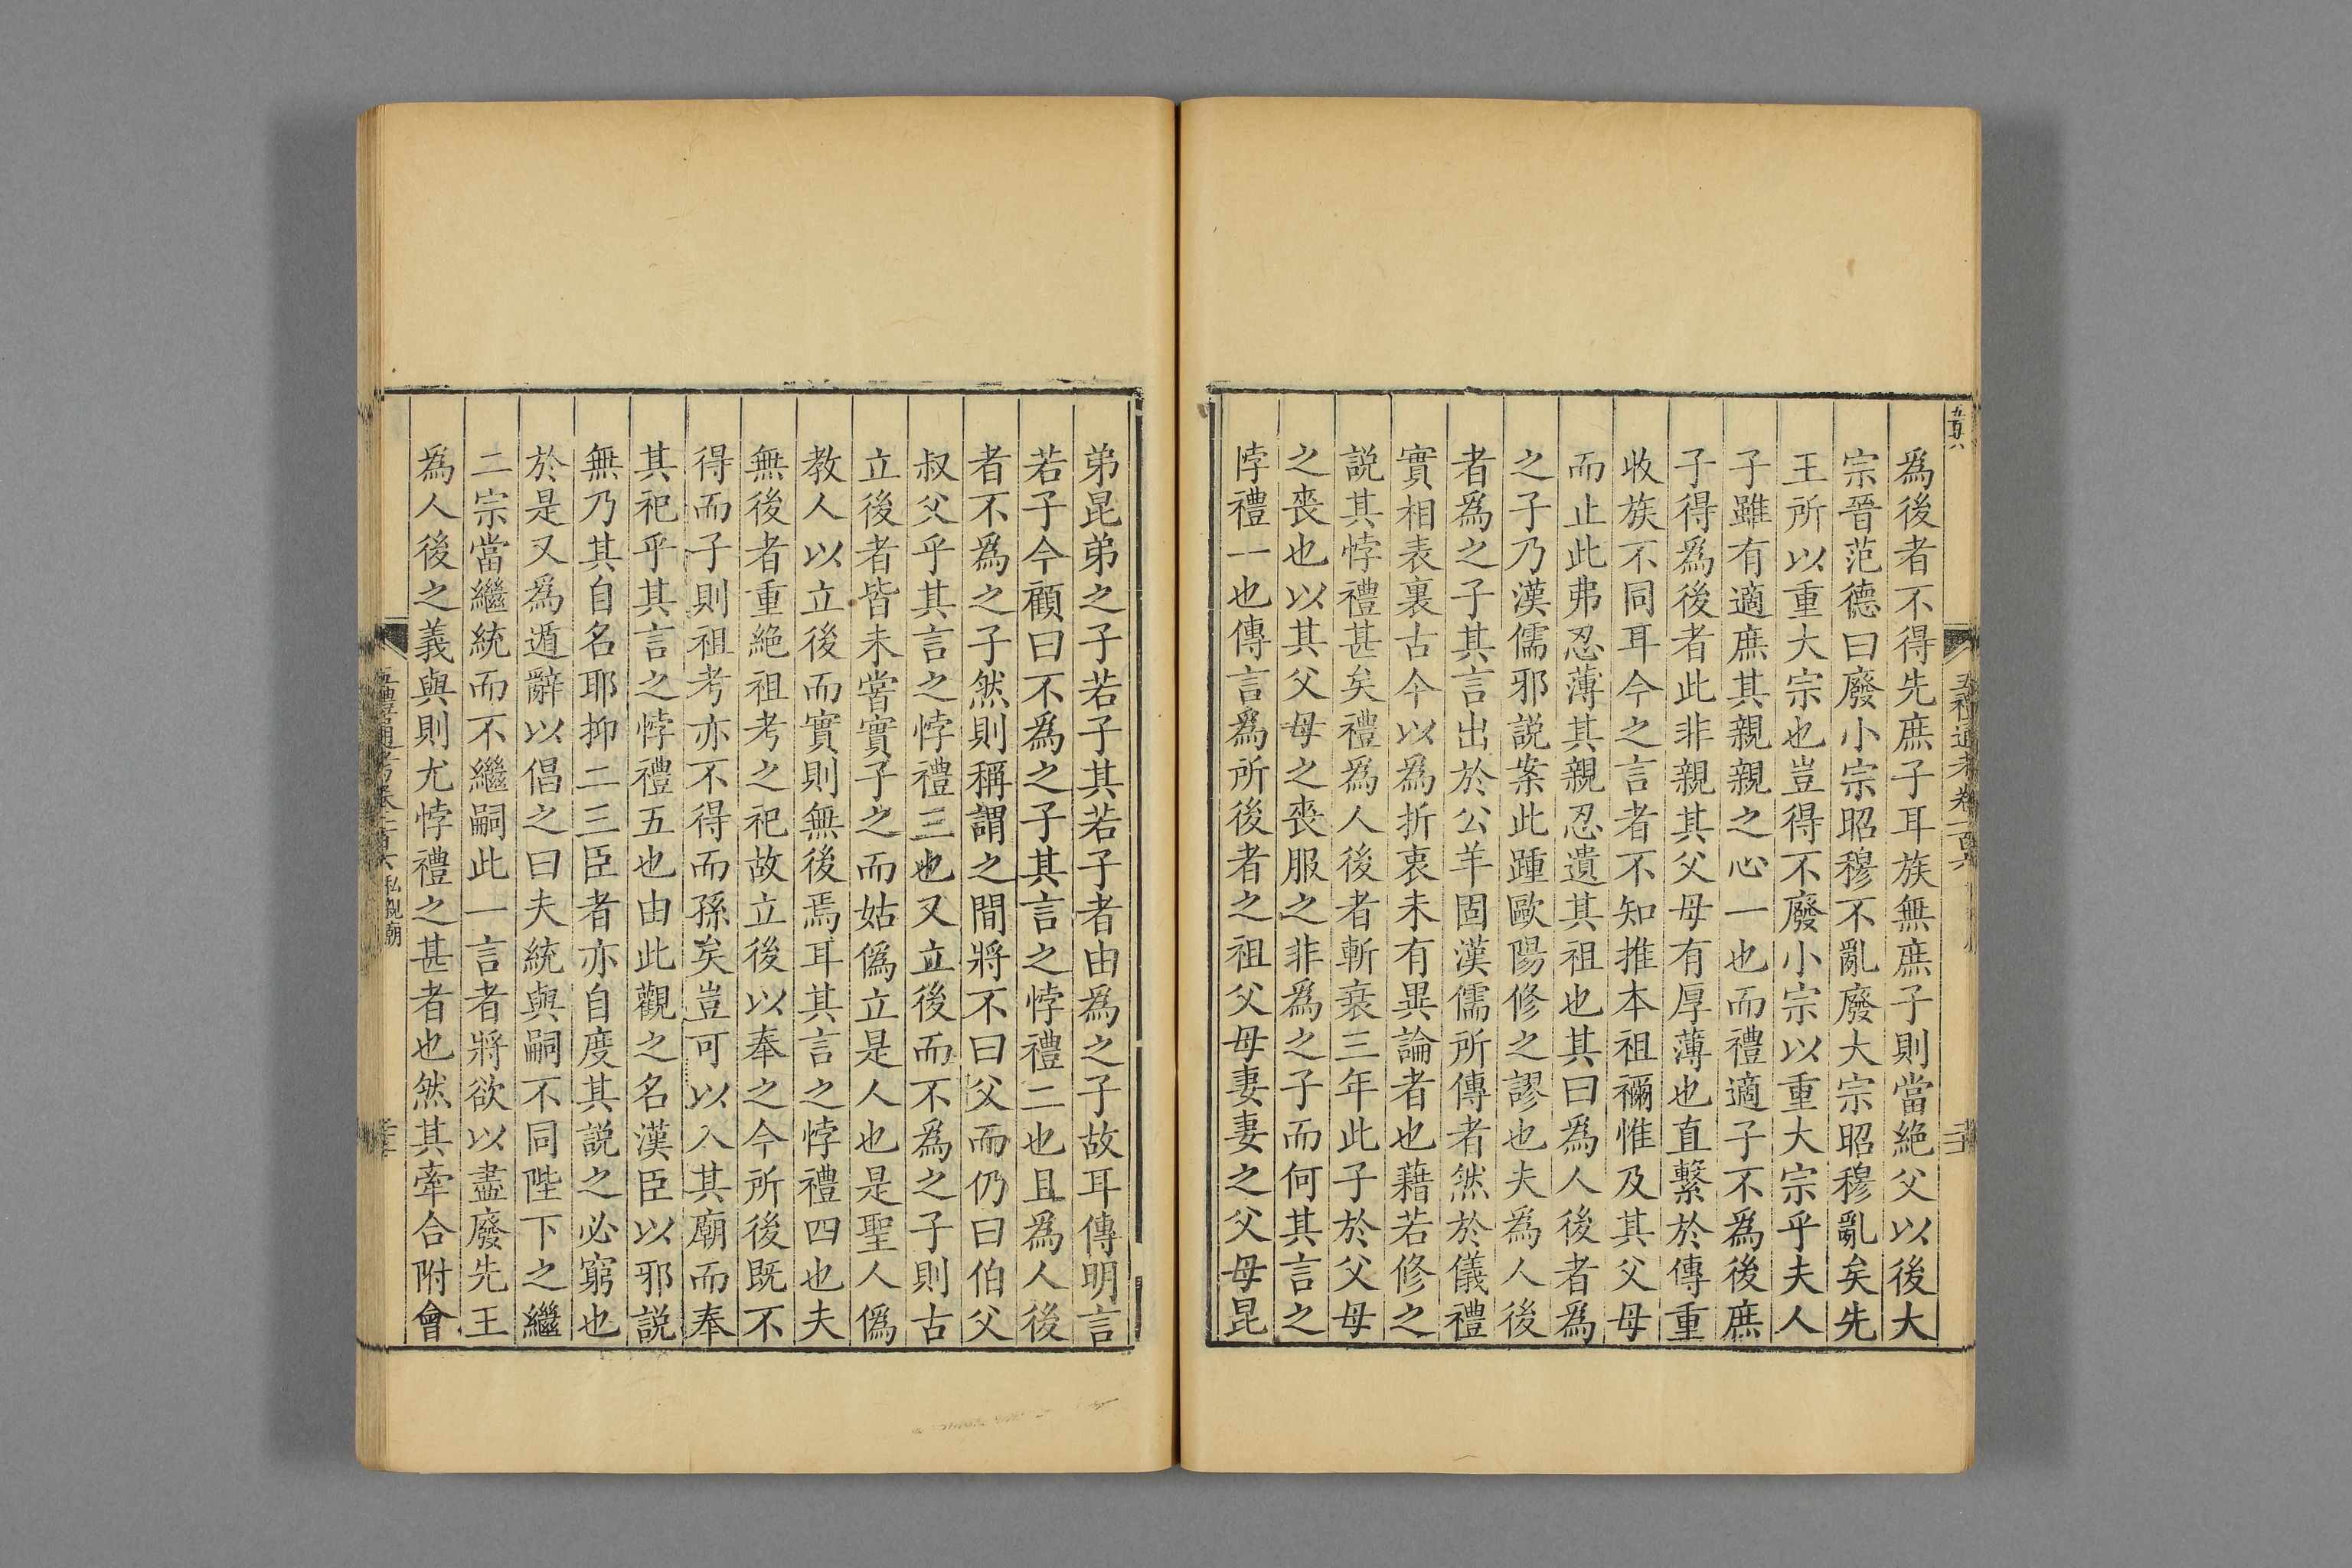 五百六
五禮通考卷一百六
爲後者不得先庶子耳族無庶子則當絶父以後大
宗晉范德曰廢小宗昭穆不亂廢大宗昭穆亂矣先
王所以重大宗也豈得不廢小宗以重大宗乎夫人
子雖有適庶其親親之心一也而禮適子不爲後庶
子得爲後者此非親其父母有厚薄也直繫於傳重
收族不同耳今之言者不知推本祖禰惟及其父母
而止此弗忍薄其親忍遺其祖也其曰爲人後者爲
之子乃漢儒邪説案此踵歐陽修之謬也夫爲人後
者爲之子其言出於公羊固漢儒所傳者然於儀禮
實相表裏古今以爲折衷未有異論者也藉若修之
説其悖禮甚矣禮爲人後者斬衰三年此子於父母
之喪也以其父母之喪服之非爲之子而何其言之
悖禮一也傳言爲所後者之祖父母妻妻之父母昆
弟昆弟之子若子其若子者由爲之子故耳傳明言
若子今顧曰不爲之子其言之悖禮二也且爲人後
者不爲之子然則稱謂之間將不曰父而仍曰伯父
叔父乎其言之悖禮三也又立後而不爲之子則古
立後者皆未嘗實子之而姑僞立是人也是聖人僞
教人以立後而實則無後焉耳其言之悖禮四也夫
無後者重絶祖考之祀故立後以奉之今所後既不
得而子則祖考亦不得而孫矣豈可以入其廟而奉
其祀乎其言之悖禮五也由此觀之名漢臣以邪説
無乃其自名耶抑二三臣者亦自度其説之必窮也
於是又爲遁辭以倡之曰夫統與嗣不同陛下之繼
二宗當繼統而不繼嗣此一言者將欲以盡廢先王
爲人後之義與則尤悖禮之甚者也然其牽合附會
五禮通考卷一百六 私親廟